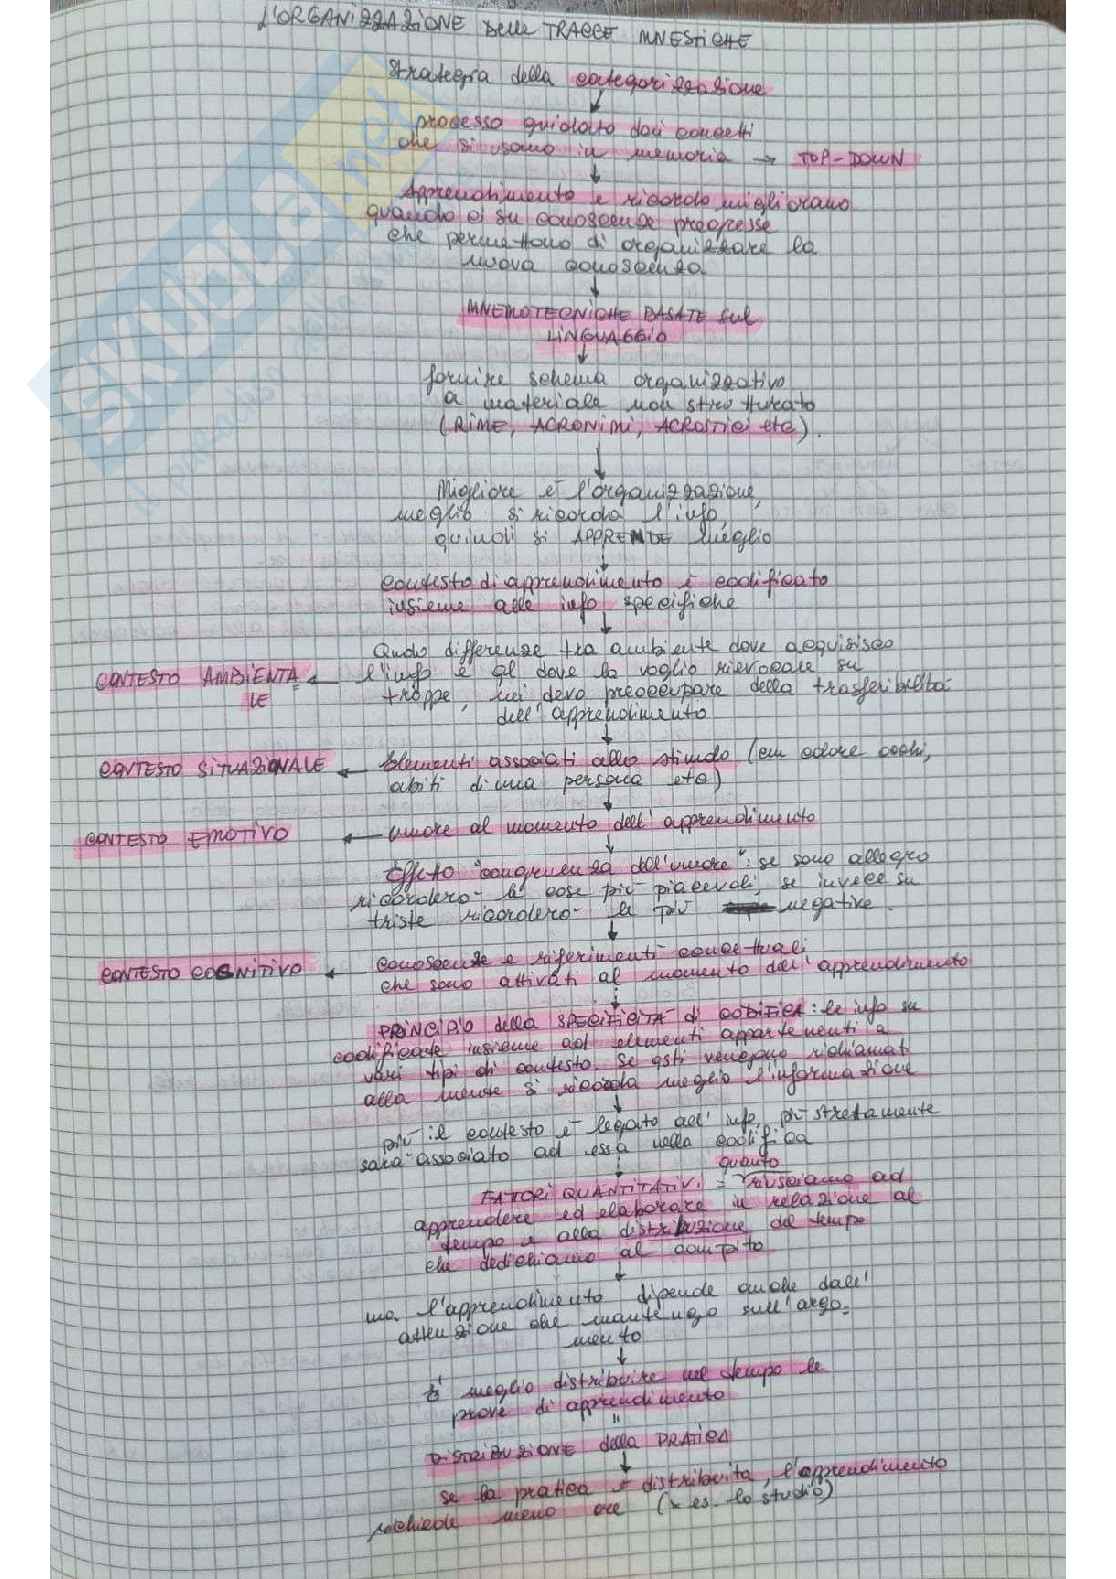 L'ORGANIZZAZIONE delle TRACCE MNESTICHE
Strategia della categorizzazione
processo guidato dai concetti
che si usano in memoria → TOP-DOWN
Apprendimento e ricordo migliorano
quando ci su conoscenze pregresse
che permettono di organizzare la
nuova conoscenza
MNEMOTECNICHE BASATE sul
LINGUAGGIO
fornire schema organizzativo
a materiale non strutturato
(RIME, ACRONIMI, ACROSTICI etc).
Migliore è l'organizzazione,
meglio si ricorda l'info,
quindi si APPRENDE meglio
contesto di apprendimento è codificato
insieme alle info specifiche
Quando differenze tra ambiente dove acquisisco
CONTESTO AMBIENTA ← l'info e ql dove la voglio rievocare su
LE
troppe, mi devo preoccupare della trasferibilità
dell'apprendimento
CONTESTO SITUAZIONALE ← Elementi associati allo stimolo (em colore occhi,
abiti di una persona etc)
CONTESTO EMOTIVO ← umore al momento dell'apprendimento
Effetto "congruenza dell'umore": se sono allegro
ricorderò le cose più piacevoli, se invece su
triste ricorderò le più negative
CONTESTO COGNITIVO ← conoscenze e riferimenti concettuali
che sono attivati al momento dell'apprendimento
PRINCIPIO della SPECIFICITÀ di CODIFICA: le info su
codificate insieme ad elementi appartenenti a
vari tipi di contesto. Se qsti vengono richiamati
alla mente si ricorda meglio l'informazione
più il contesto è legato all'info, più strettamente
sarà associato ad essa nella codifica
quanto
FATTORI QUANTITATIVI = riusciamo ad
apprendere ed elaborare in relazione al
tempo e alla distribuzione del tempo
che dedichiamo al compito
ma l'apprendimento dipende anche dall'
attenzione che mantengo sull'argo-
mento
È meglio distribuire nel tempo le
prove di apprendimento
"
DISTRIBUZIONE della PRATICA
se la pratica è distribuita, l'apprendimento
richiede meno ore (x es. lo studio)
SKUOLA.net